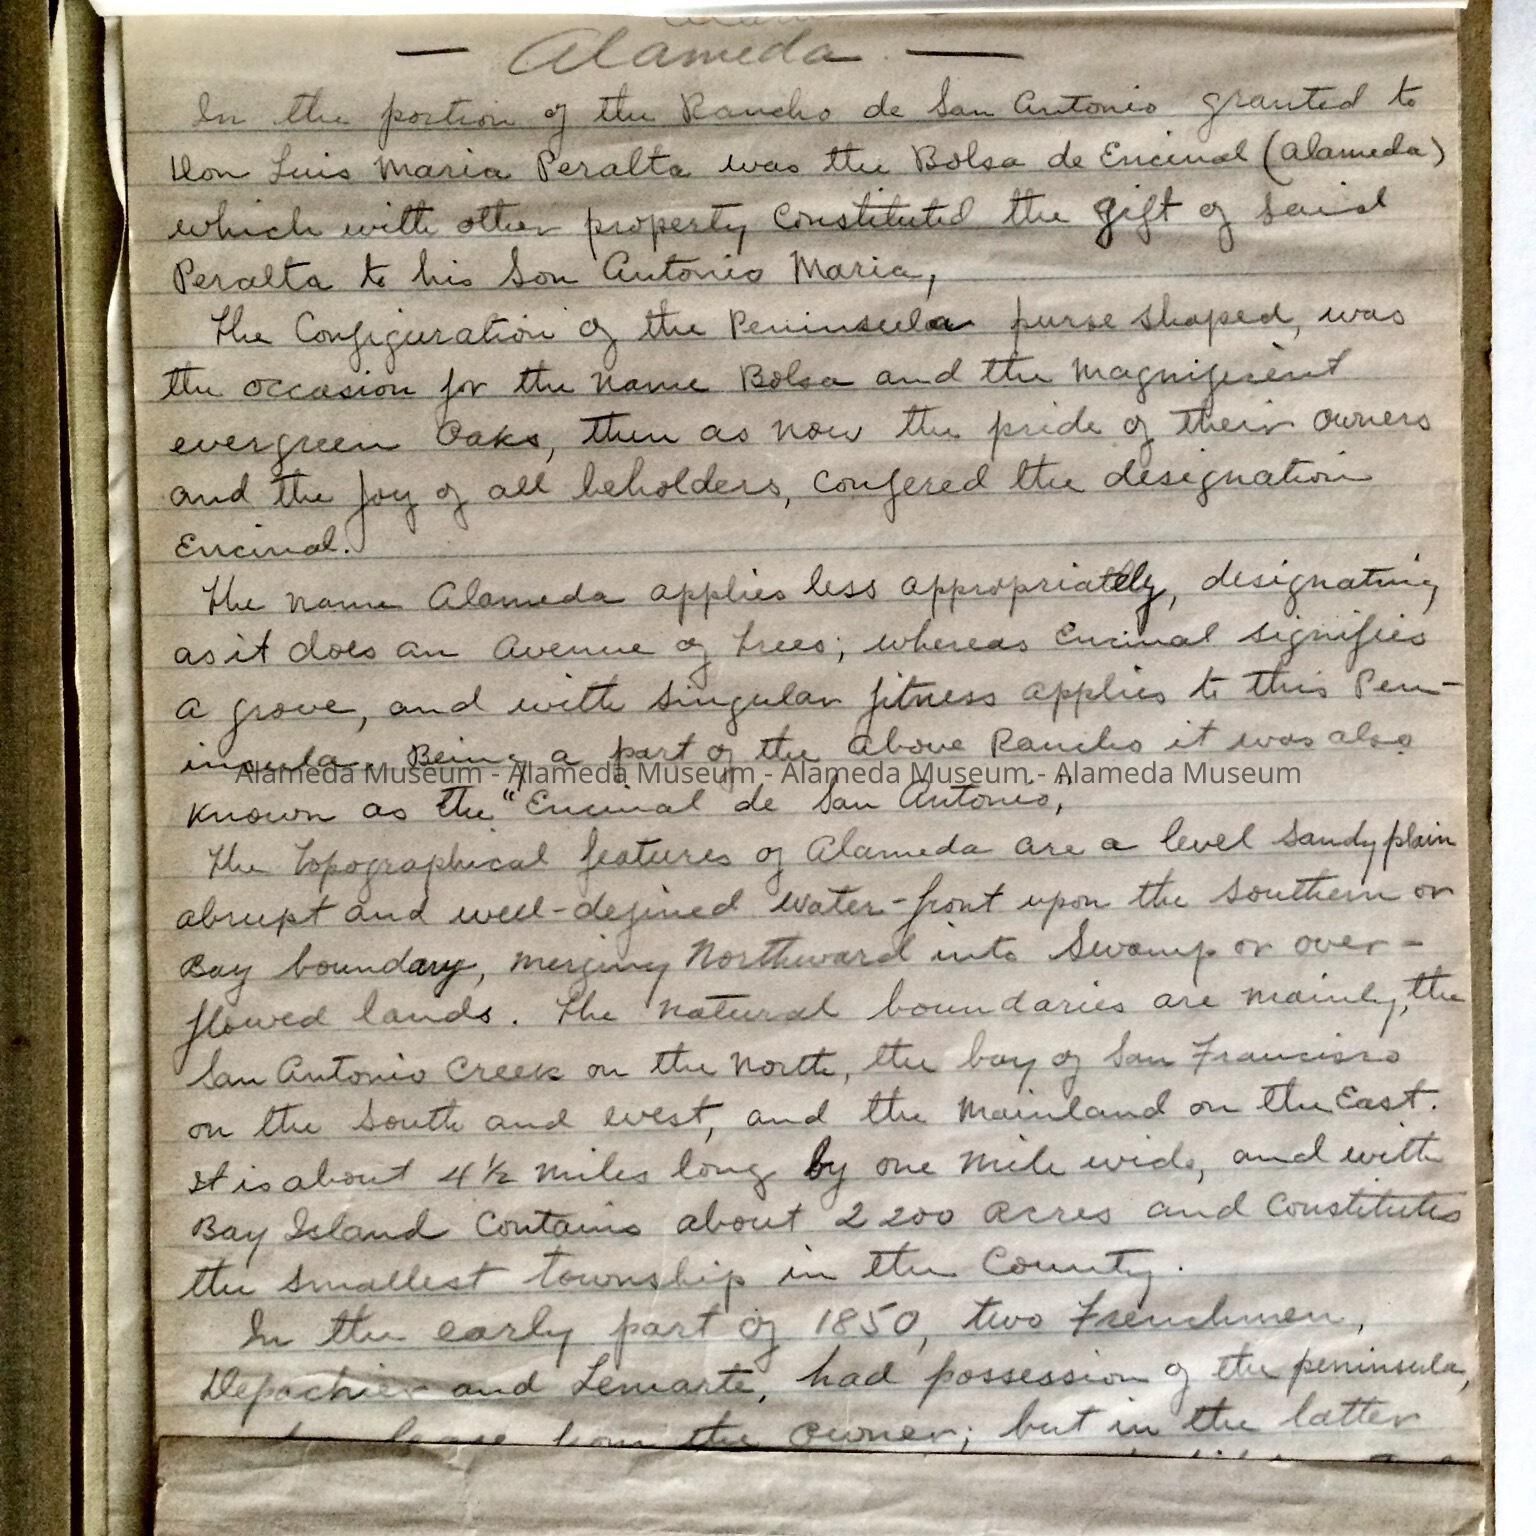 — Alameda —
In the portion of the Rancho de San Antonio granted to
Don Luis Maria Peralta was the Bolsa de Encinal (Alameda)
which with other property constituted the gift of said
Peralta to his Son Antonio Maria,
The Configuration of the Peninsula purse shaped, was
the occasion for the name Bolsa and the magnificent
evergreen Oaks, then as now the pride of their owners
and the joy of all beholders, confered the designation
Encinal.
The name Alameda applies less appropriately, designating
as it does an Avenue of trees; whereas Encinal signifies
a grove, and with singular fitness applies to this Pen-
insula. Being a part of the above Rancho it was also
Alameda Museum - Alameda Museum - Alameda Museum - Alameda Museum
known as the "Encinal de San Antonio,"
The Topographical features of Alameda are a level sandy plain
abrupt and well-defined water-front upon the southern or
Bay boundary, merging Northward into Swamp or over-
flowed lands. The natural boundaries are mainly, the
San Antonio Creek on the North, the bay of San Francisco
on the South and west, and the mainland on the East.
It is about 4½ miles long by one mile wide, and with
Bay Island Contains about 2200 Acres and Constitutes
the smallest township in the County.
In the early part of 1850, two Frenchmen,
Depachier and Lemarte, had possession of the peninsula,
lease from the owner; but in the latter